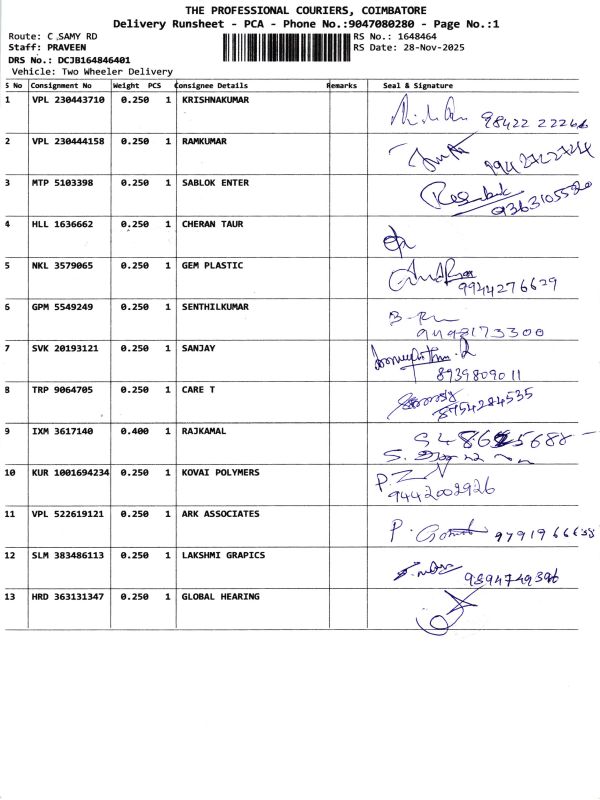 THE PROFESSIONAL COURIERS, COIMBATORE
Delivery Runsheet - PCA - Phone No.:9047080280 - Page No.:1
Route: C.SAMY RD RS No.: 1648464
Staff: PRAVEEN RS Date: 28-Nov-2025
DRS No.: DCJB164846401
Vehicle: Two Wheeler Delivery
S No Consignment No Weight PCS Consignee Details Remarks Seal & Signature
1 VPL 230443710 0.250 1 KRISHNAKUMAR
2 VPL 230444158 0.250 1 RAMKUMAR
3 MTP 5103398 0.250 1 SABLOK ENTER
4 HLL 1636662 0.250 1 CHERAN TAUR
5 NKL 3579065 0.250 1 GEM PLASTIC
9944276629
6 GPM 5549249 0.250 1 SENTHILKUMAR
7 SVK 20193121 0.250 1 SANJAY
8939809011
8 TRP 9064705 0.250 1 CARE T
8754284535
9 IXM 3617140 0.400 1 RAJKAMAL
10 KUR 1001694234 0.250 1 KOVAI POLYMERS
9442002926
11 VPL 522619121 0.250 1 ARK ASSOCIATES
12 SLM 383486113 0.250 1 LAKSHMI GRAPICS
13 HRD 363131347 0.250 1 GLOBAL HEARING